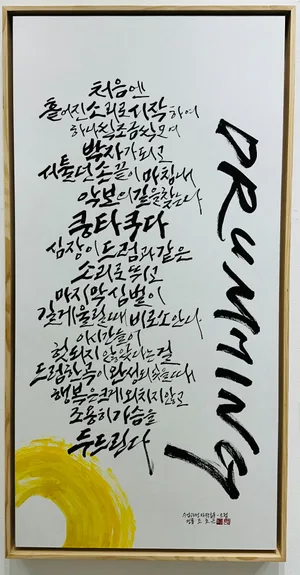 처음엔
흩어진 소리로 시작하여
하나씩 조금씩 모여
박자가 되고
서툴던 손끝이 마침내
악보의 길을 찾는다
쿵타쿵다
심장이 드럼과 같은
소리로 뛰고
마지막 심벌이
깊게 울릴 때 비로소 안다
이 시간들이
헛되지 않았다는 걸
드럼 한 곡이 완성되었을 때
행복은 크게 외치지 않고
조용히 가슴을
두드린다
DRUMMING